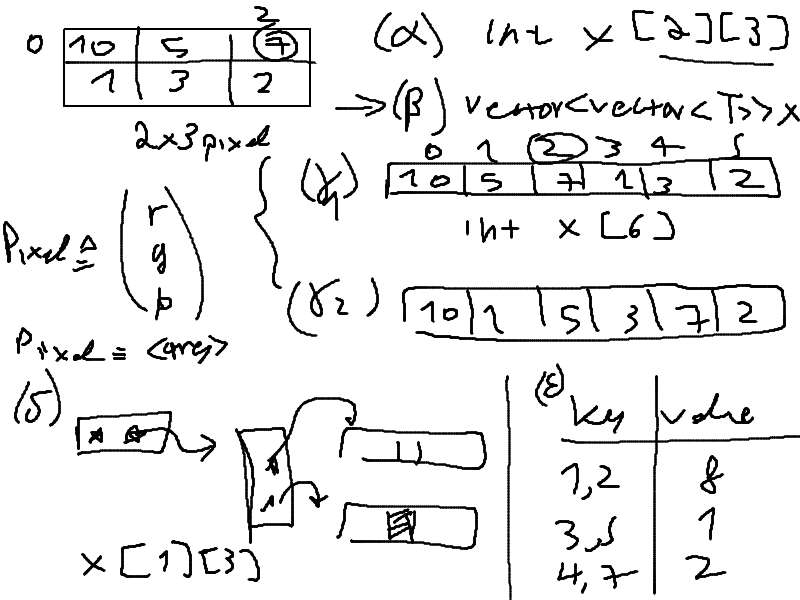 2
0 10 5 7
1 3 2
2x3 pixel
(α) int x [2][3]
→ (β) vector<vector<T>> x
0 1 2 3 4 5
(γ1) 10 5 7 1 3 2
int x [6]
(γ2) 10 1 5 3 7 2
Pixel ≙ (r
g
b)
Pixel ≡ <array>
(δ)
x [1][3]
(ε) key value
1,2 8
3,5 1
4,7 2